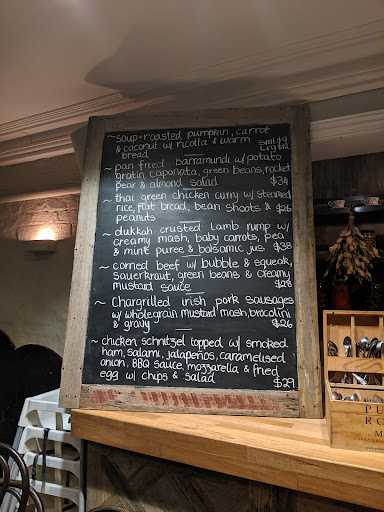 ~soup-roasted pumpkin, carrot
& coconut w/ ricotta & warm sml $9
bread Lrg $12
~ pan fried barramundi w/ potato
gratin, caponata, green beans, rocket
pear & almond salad $34
~ thai green chicken curry w/ steamed
rice, flat bread, bean shoots & $26
peanuts
~ dukkah crusted lamb rump w/
creamy mash, baby carrots, pea
& mint puree & balsamic jus $38
~ corned beef w/ bubble & squeak,
sauerkraut, green beans & creamy
mustard sauce $28
~ Chargrilled irish pork sausages
w/ wholegrain mustard mash, brocolini
& gravy $26
~ chicken schnitzel topped w/ smoked
ham, salami, jalapeños, caramelised
onion, BBQ sauce, mozzarella & fried
egg w/ chips & salad $29